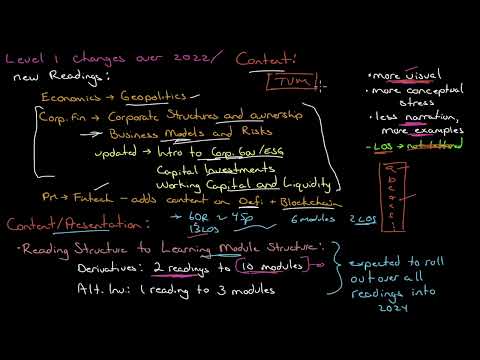 Level 1 Changes over 2022/ Content:
new Readings:
TVM
Economics → Geopolitics
Corp. Fin → Corporate Structures and ownership
→ Business Models and Risks
updated → Intro to Corp. Gov/ESG
Capital Investments
Working Capital and Liquidity
Pm → Fintech - adds content on Defi + Blockchain
• more visual
• more conceptual
stress
• less narration,
more examples
- LOS → not lettered
a
b
c
d
e
Content/Presentation:
→ 60R → 45p
13 LOS
6 modules
2 LOS
• Reading Structure to Learning Module Structure:
Derivatives: 2 readings to 10 modules
Alt. Inv: 1 reading to 3 modules
expected to roll
out over all
readings into
2024